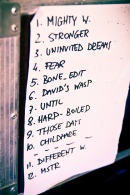 1. MIGHTY W.
2. STRONGER
3. UNINVITED DREAMS
4. FEAR
5. BONE_EDIT
6. DAVID'S WASP
7. UNTIL
8. HARD-BOILED
9. THOSE DAYS
10. CHILDHOOD
11. DIFFERENT W.
12. MSTR